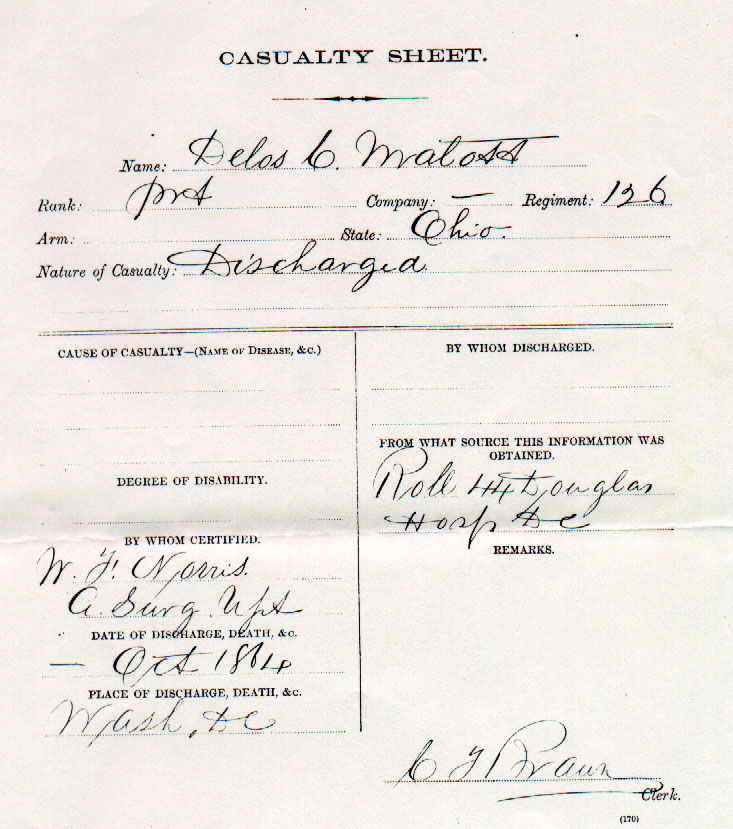 CASUALTY SHEET.
Name: Delos C. Matott
Rank: prt Company: — Regiment: 126
Arm: State: Ohio.
Nature of Casualty: Discharged.
CAUSE OF CASUALTY—(NAME OF DISEASE, &C.)
DEGREE OF DISABILITY.
BY WHOM CERTIFIED.
W. F. Norris.
A. Surg.
DATE OF DISCHARGE, DEATH, &C.
— Oct 1864
PLACE OF DISCHARGE, DEATH, &C.
Wash, DC
BY WHOM DISCHARGED.
FROM WHAT SOURCE THIS INFORMATION WAS
OBTAINED.
Roll 44 Douglas
Hosp DC
REMARKS.
C F Braun
Clerk.
(170)